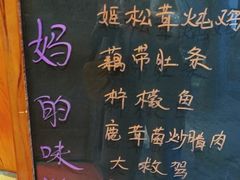 妈的味
姬松茸炖鸡
藕带肚条
柠檬鱼
鹿茸菌炒腊肉
大救驾